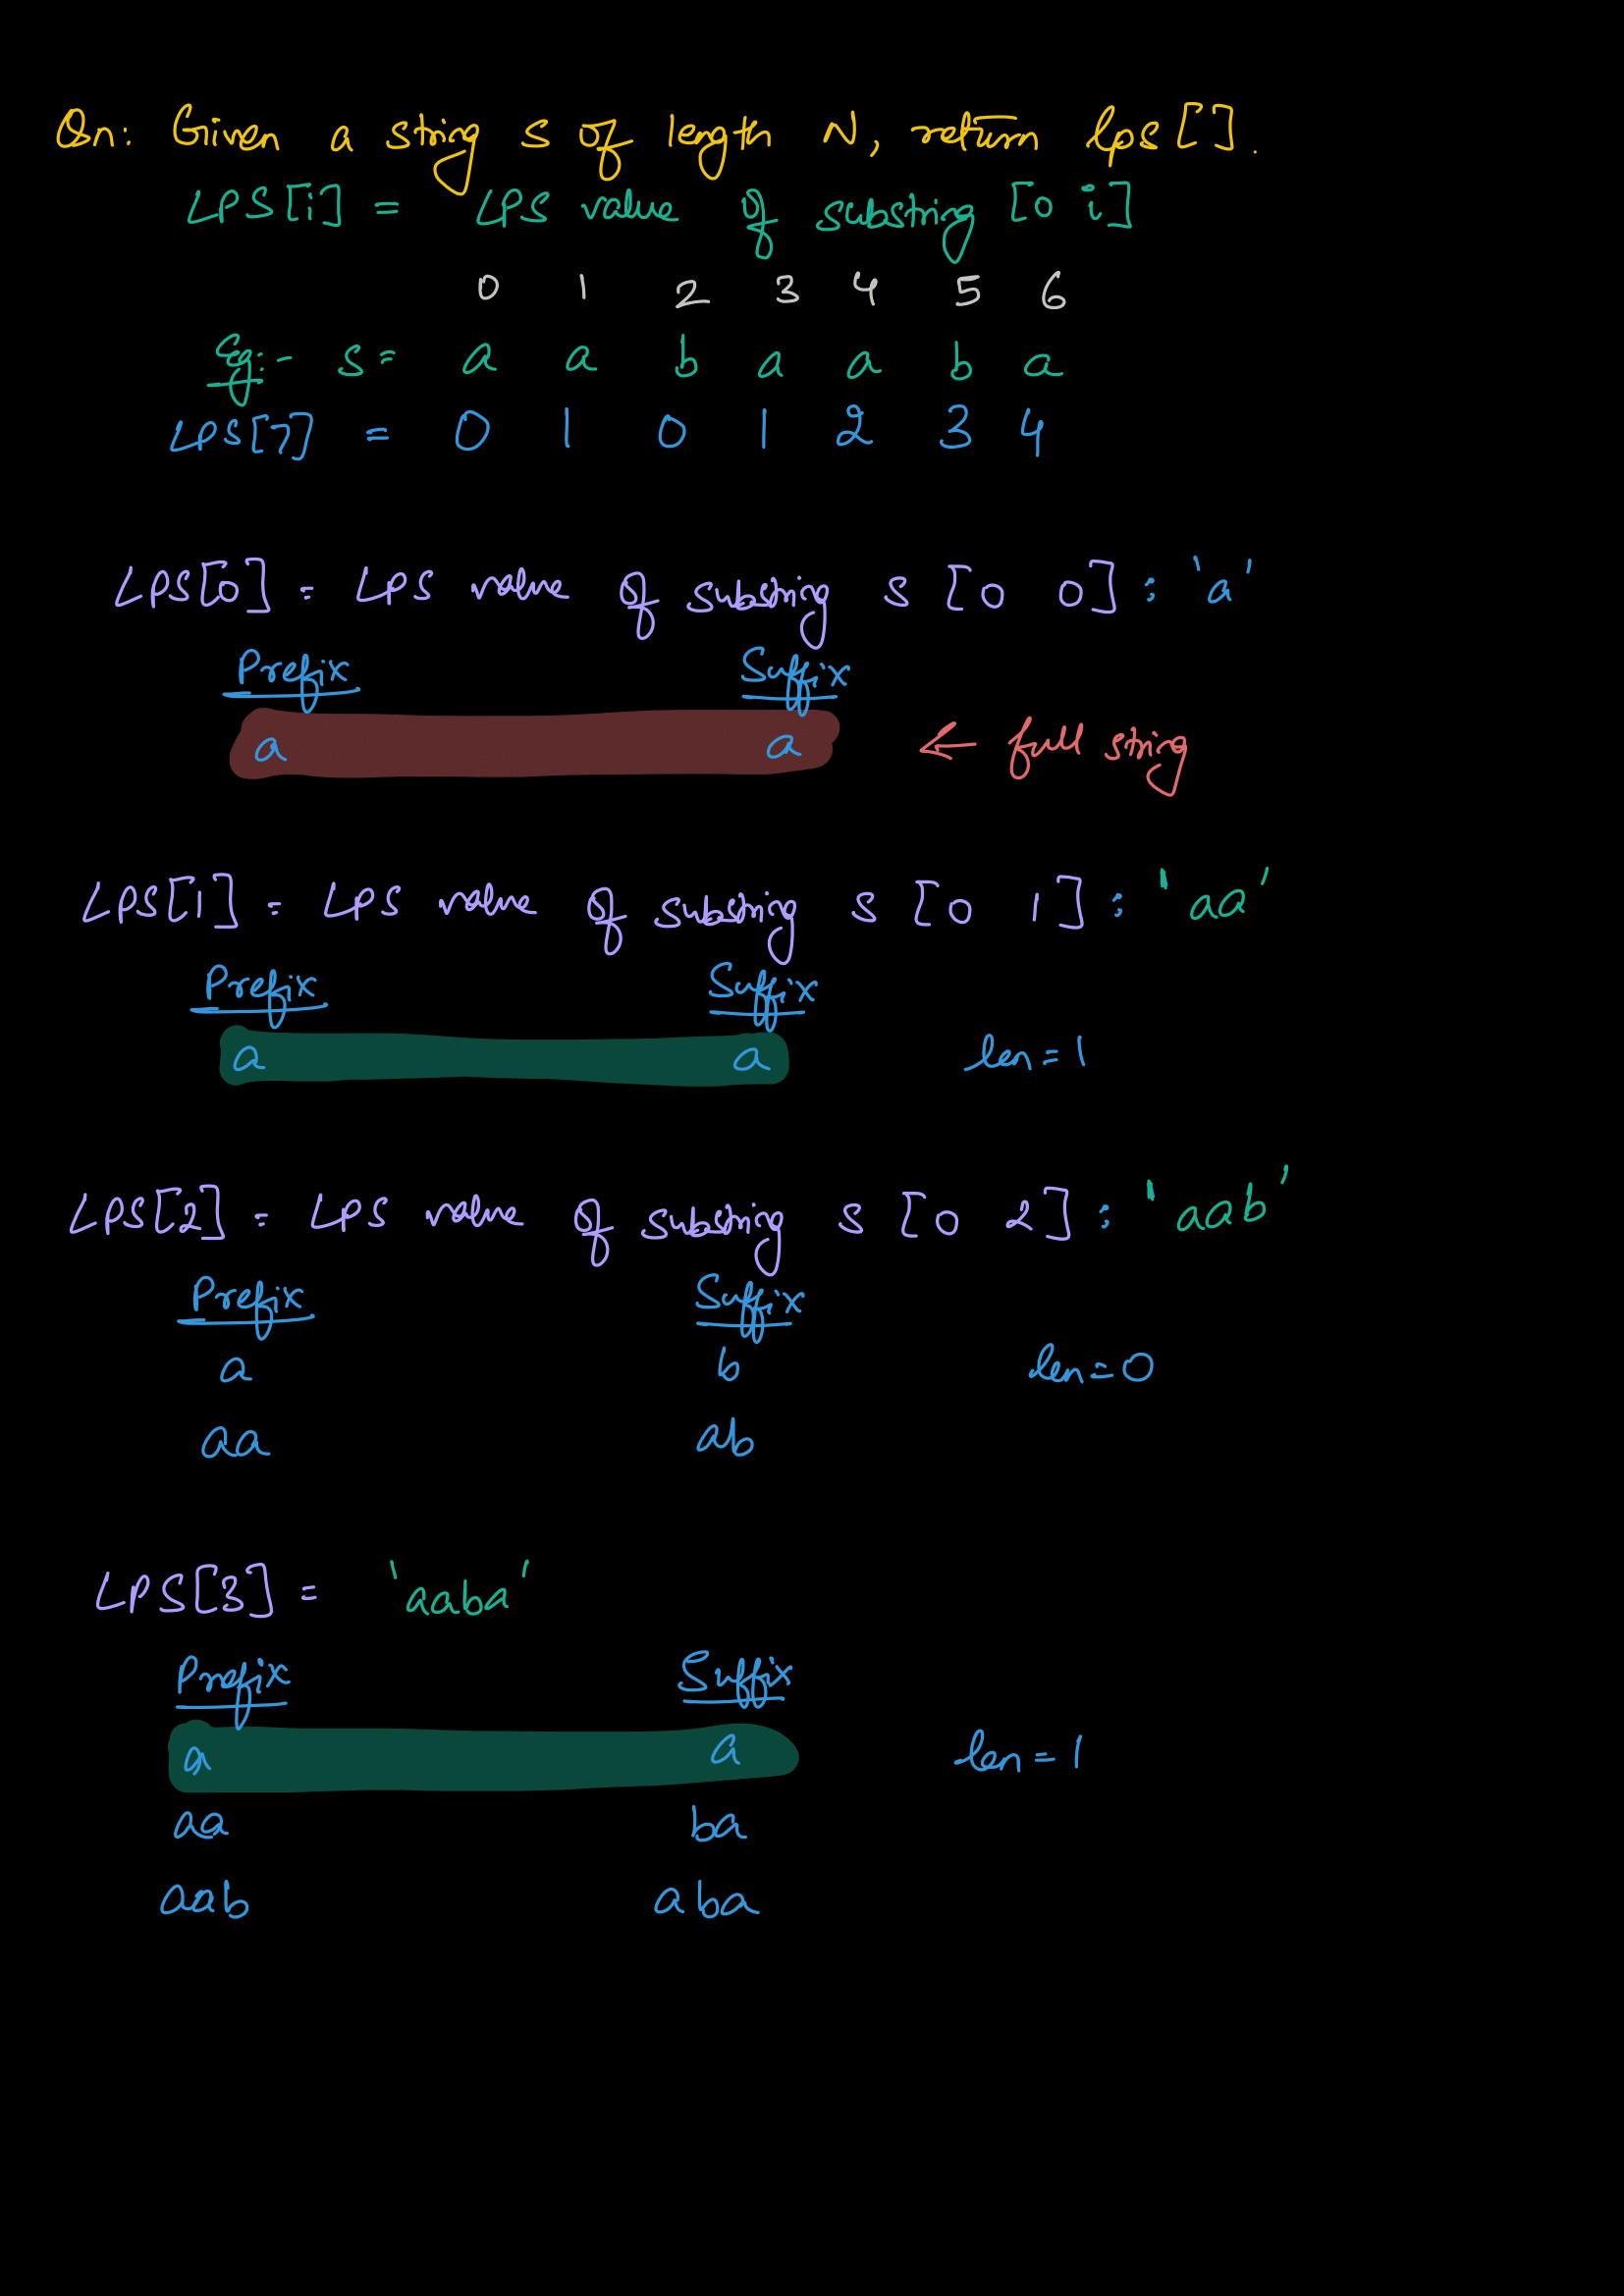 Qn: Given a string s of length N, return lps[].
LPS[i] = LPS value of substring [0 i]
0 1 2 3 4 5 6
Eg:- s = a a b a a b a
LPS[7] = 0 1 0 1 2 3 4
LPS[0] = LPS value of substring s [0 0] : 'a'
Prefix Suffix
a a ← full string
LPS[1] = LPS value of substring s [0 1] : 'aa'
Prefix Suffix
a a len = 1
LPS[2] = LPS value of substring s [0 2] : 'aab'
Prefix Suffix
a b len = 0
aa ab
LPS[3] = 'aaba'
Prefix Suffix
a a len = 1
aa ba
aab aba